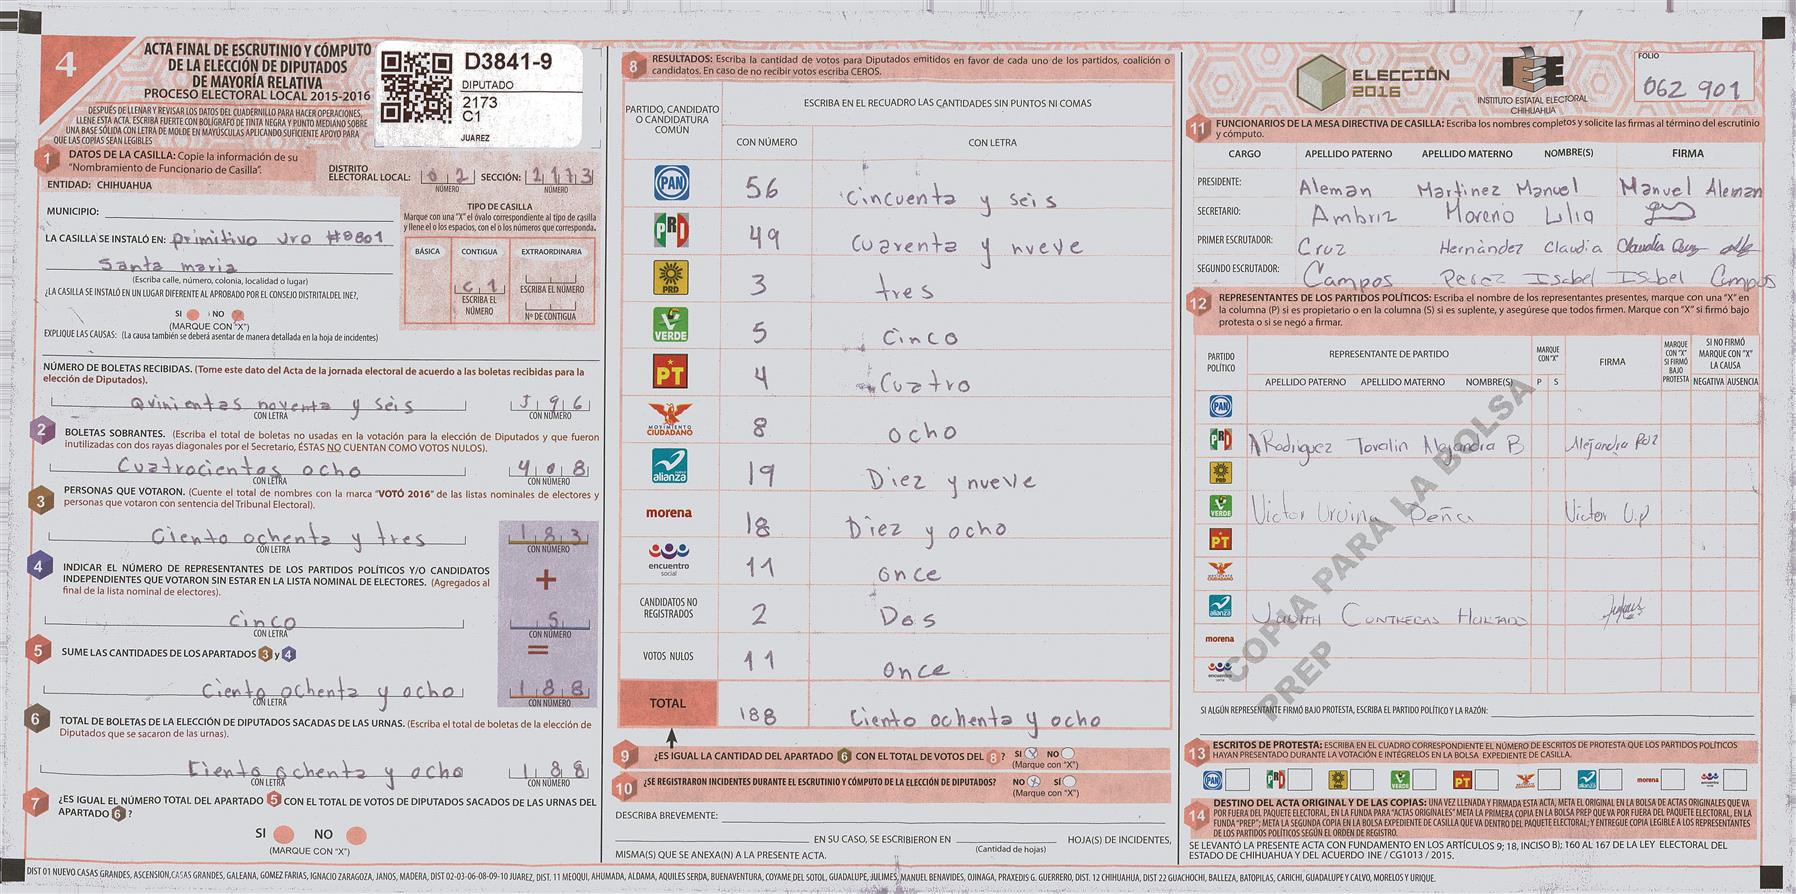 4
ACTA FINAL DE ESCRUTINIO Y CÓMPUTO
DE LA ELECCIÓN DE DIPUTADOS
DE MAYORÍA RELATIVA
PROCESO ELECTORAL LOCAL 2015-2016
DESPUÉS DE LLENAR Y REVISAR LOS DATOS DEL CUADERNILLO PARA HACER OPERACIONES,
LLENE ESTA ACTA. ESCRIBA FUERTE CON BOLÍGRAFO DE TINTA NEGRA Y PUNTO MEDIANO SOBRE
UNA BASE SÓLIDA CON LETRA DE MOLDE EN MAYÚSCULAS APLICANDO SUFICIENTE APOYO PARA
QUE LAS COPIAS SEAN LEGIBLES
D3841-9
DIPUTADO
2173
C1
JUAREZ
1 DATOS DE LA CASILLA: Copie la información de su
"Nombramiento de Funcionario de Casilla".
ENTIDAD: CHIHUAHUA
DISTRITO
ELECTORAL LOCAL: 02 SECCIÓN: 2173
NÚMERO NÚMERO
MUNICIPIO:
LA CASILLA SE INSTALÓ EN: primitivo uro #8801
santa maria
(Escriba calle, número, colonia, localidad o lugar)
¿LA CASILLA SE INSTALÓ EN UN LUGAR DIFERENTE AL APROBADO POR EL CONSEJO DISTRITAL DEL INE?,
SI NO
(MARQUE CON "X")
EXPLIQUE LAS CAUSAS: (La causa también se deberá asentar de manera detallada en la hoja de incidentes)
TIPO DE CASILLA
Marque con una "X" el óvalo correspondiente al tipo de casilla
y llene el o los espacios, con el o los números que corresponda.
BÁSICA CONTIGUA EXTRAORDINARIA
C1
ESCRIBA EL NÚMERO
ESCRIBA EL NÚMERO
Nº DE CONTIGUA
NÚMERO DE BOLETAS RECIBIDAS. (Tome este dato del Acta de la jornada electoral de acuerdo a las boletas recibidas para la
elección de Diputados).
Qvinientas noventa y seis 596
CON LETRA CON NÚMERO
2 BOLETAS SOBRANTES. (Escriba el total de boletas no usadas en la votación para la elección de Diputados y que fueron
inutilizadas con dos rayas diagonales por el Secretario, ÉSTAS NO CUENTAN COMO VOTOS NULOS).
Cuatrocientos ocho 408
CON LETRA CON NÚMERO
3 PERSONAS QUE VOTARON. (Cuente el total de nombres con la marca "VOTÓ 2016" de las listas nominales de electores y
personas que votaron con sentencia del Tribunal Electoral).
Ciento ochenta y tres 183
CON LETRA CON NÚMERO
+
4 INDICAR EL NÚMERO DE REPRESENTANTES DE LOS PARTIDOS POLÍTICOS Y/O CANDIDATOS
INDEPENDIENTES QUE VOTARON SIN ESTAR EN LA LISTA NOMINAL DE ELECTORES. (Agregados al
final de la lista nominal de electores).
cinco 5
CON LETRA CON NÚMERO
=
5 SUME LAS CANTIDADES DE LOS APARTADOS 3 y 4
Ciento ochenta y ocho 188
CON LETRA CON NÚMERO
6 TOTAL DE BOLETAS DE LA ELECCIÓN DE DIPUTADOS SACADAS DE LAS URNAS. (Escriba el total de boletas de la elección de
Diputados que se sacaron de las urnas).
Ciento ochenta y ocho 188
CON LETRA CON NÚMERO
7 ¿ES IGUAL EL NÚMERO TOTAL DEL APARTADO 5 CON EL TOTAL DE VOTOS DE DIPUTADOS SACADOS DE LAS URNAS DEL
APARTADO 6?
SI NO
(MARQUE CON "X")
8 RESULTADOS: Escriba la cantidad de votos para Diputados emitidos en favor de cada uno de los partidos, coalición o
candidatos. En caso de no recibir votos escriba CEROS.
PARTIDO, CANDIDATO O CANDIDATURA COMÚN
ESCRIBA EN EL RECUADRO LAS CANTIDADES SIN PUNTOS NI COMAS
CON NÚMERO CON LETRA
PAN 56 cincuenta y seis
PRI 49 cuarenta y nveve
PRD 3 tres
VERDE 5 cinco
PT 4 Cuatro
MOVIMIENTO CIUDADANO 8 ocho
nueva alianza 19 Diez y nueve
morena 18 Diez y ocho
encuentro social 11 once
CANDIDATOS NO REGISTRADOS 2 Dos
VOTOS NULOS 11 once
TOTAL 188 Ciento ochenta y ocho
9 ¿ES IGUAL LA CANTIDAD DEL APARTADO 6 CON EL TOTAL DE VOTOS DEL 8? SI X NO
(Marque con "X")
10 ¿SE REGISTRARON INCIDENTES DURANTE EL ESCRUTINIO Y CÓMPUTO DE LA ELECCIÓN DE DIPUTADOS? NO X SÍ
(Marque con "X")
DESCRIBA BREVEMENTE:
EN SU CASO, SE ESCRIBIERON EN HOJA(S) DE INCIDENTES,
(Cantidad de hojas)
MISMA(S) QUE SE ANEXA(N) A LA PRESENTE ACTA.
ELECCIÓN
2016
IEE
INSTITUTO ESTATAL ELECTORAL
CHIHUAHUA
FOLIO
062 901
11 FUNCIONARIOS DE LA MESA DIRECTIVA DE CASILLA: Escriba los nombres completos y solicite las firmas al término del escrutinio
y cómputo.
CARGO APELLIDO PATERNO APELLIDO MATERNO NOMBRE(S) FIRMA
PRESIDENTE: Aleman Martinez Manuel Manuel Aleman
SECRETARIO: Ambriz Moreno Lilia
PRIMER ESCRUTADOR: Cruz Hernàndez Claudia Claudia Cruz
SEGUNDO ESCRUTADOR: Campos Perez Isabel Isabel Campos
12 REPRESENTANTES DE LOS PARTIDOS POLÍTICOS: Escriba el nombre de los representantes presentes, marque con una "X" en
la columna (P) si es propietario o en la columna (S) si es suplente, y asegúrese que todos firmen. Marque con "X" si firmó bajo
protesta o si se negó a firmar.
PARTIDO POLÍTICO
REPRESENTANTE DE PARTIDO
MARQUE CON "X"
FIRMA
MARQUE CON "X" SI FIRMÓ BAJO PROTESTA
SI NO FIRMÓ MARQUE CON "X" LA CAUSA
APELLIDO PATERNO APELLIDO MATERNO NOMBRE(S) P S NEGATIVA AUSENCIA
PAN
PRI Rodriguez Tovalin Alejandra B Alejandra Rdz
PRD
VERDE Victor Urvina Peña Victor U.P
PT
alianza Judith Contreras Hurtado
morena
encuentro social
COPIA PARA LA BOLSA
PREP
SI ALGÚN REPRESENTANTE FIRMÓ BAJO PROTESTA, ESCRIBA EL PARTIDO POLÍTICO Y LA RAZÓN:
13 ESCRITOS DE PROTESTA: ESCRIBA EN EL CUADRO CORRESPONDIENTE EL NÚMERO DE ESCRITOS DE PROTESTA QUE LOS PARTIDOS POLÍTICOS
HAYAN PRESENTADO DURANTE LA VOTACIÓN E INTÉGRELOS EN LA BOLSA EXPEDIENTE DE CASILLA.
PAN PRI PRD VERDE PT alianza morena
14 DESTINO DEL ACTA ORIGINAL Y DE LAS COPIAS: UNA VEZ LLENADA Y FIRMADA ESTA ACTA, META EL ORIGINAL EN LA BOLSA DE ACTAS ORIGINALES QUE VA
POR FUERA DEL PAQUETE ELECTORAL, EN LA FUNDA PARA "ACTAS ORIGINALES" META LA PRIMERA COPIA EN LA BOLSA PREP QUE VA POR FUERA DEL PAQUETE ELECTORAL, EN LA
FUNDA "PREP"; META LA SEGUNDA COPIA EN LA BOLSA EXPEDIENTE DE CASILLA QUE VA DENTRO DEL PAQUETE ELECTORAL; Y ENTREGUE COPIA LEGIBLE A LOS REPRESENTANTES
DE LOS PARTIDOS POLÍTICOS SEGÚN EL ORDEN DE REGISTRO.
SE LEVANTÓ LA PRESENTE ACTA CON FUNDAMENTO EN LOS ARTÍCULOS 9; 18, INCISO B); 160 AL 167 DE LA LEY ELECTORAL DEL
ESTADO DE CHIHUAHUA Y DEL ACUERDO INE / CG1013 / 2015.
DIST 01 NUEVO CASAS GRANDES, ASCENSION,CASAS GRANDES, GALEANA, GOMEZ FARIAS, IGNACIO ZARAGOZA, JANOS, MADERA, DIST 02-03-06-08-09-10 JUAREZ, DIST. 11 MEOQUI, AHUMADA, ALDAMA, AQUILES SERDA, BUENAVENTURA, COYAME DEL SOTOL, GUADALUPE, JULIMES, MANUEL BENAVIDES, OJINAGA, PRAXEDIS G. GUERRERO, DIST. 12 CHIHUAHUA, DIST 22 GUACHOCHI, BALLEZA, BATOPILAS, CARICHI, GUADALUPE Y CALVO, MORELOS Y URIQUE.